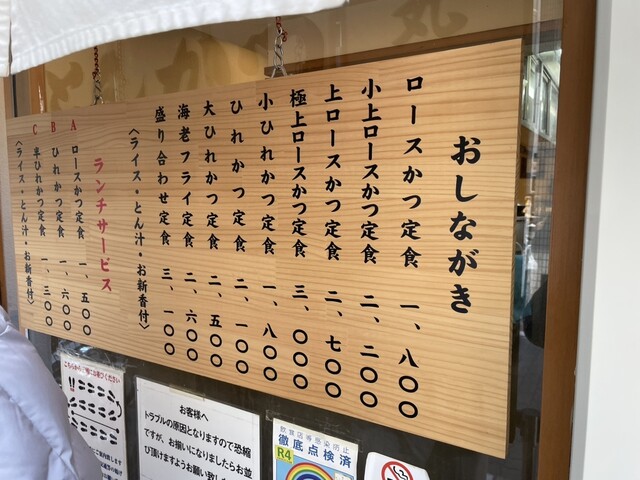 おしながき
ロースかつ定食 一、八〇〇
小上ロースかつ定食 二、二〇〇
上ロースかつ定食 二、七〇〇
極上ロースかつ定食 三、〇〇〇
小ひれかつ定食 一、八〇〇
ひれかつ定食 二、一〇〇
大ひれかつ定食 二、五〇〇
海老フライ定食 二、六〇〇
盛り合わせ定食 三、一〇〇
〈ライス・とん汁・お新香付〉
ランチサービス
A ロースかつ定食 一、五〇〇
B ひれかつ定食 一、六〇〇
C 半ひれかつ定食 一、三〇〇
〈ライス・とん汁・お新香付〉
お客様へ
トラブルの原因となりますので恐縮
ですが、お揃いになりましたらお並
び頂けますようお願い致し
飲食店等感染防止
徹底点検済
R4